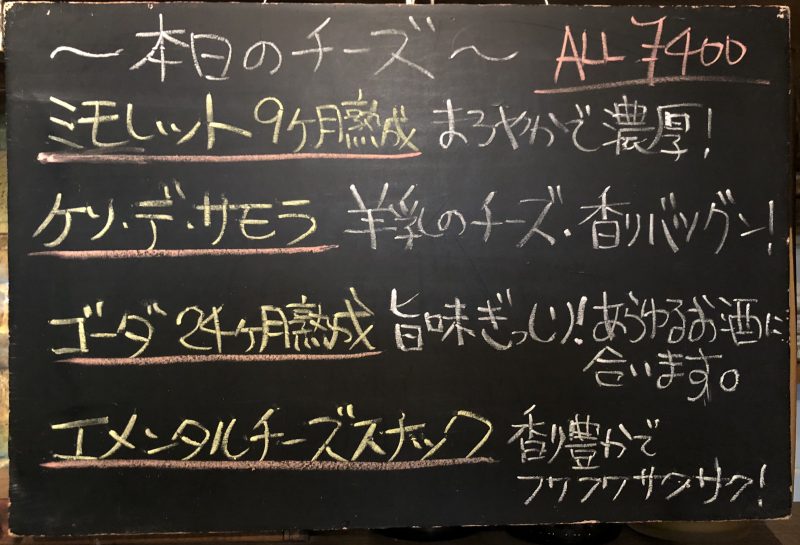 ～本日のチーズ～ ALL ¥400
ミモレット 9ヶ月熟成 まろやかで濃厚!
ケソ・デ・サモラ 羊乳のチーズ・香りバツグン!
ゴーダ 24ヶ月熟成 旨味ぎっしり!あらゆるお酒に
合います。
エメンタルチーズスナック 香り豊かで
フワフワサクサク!